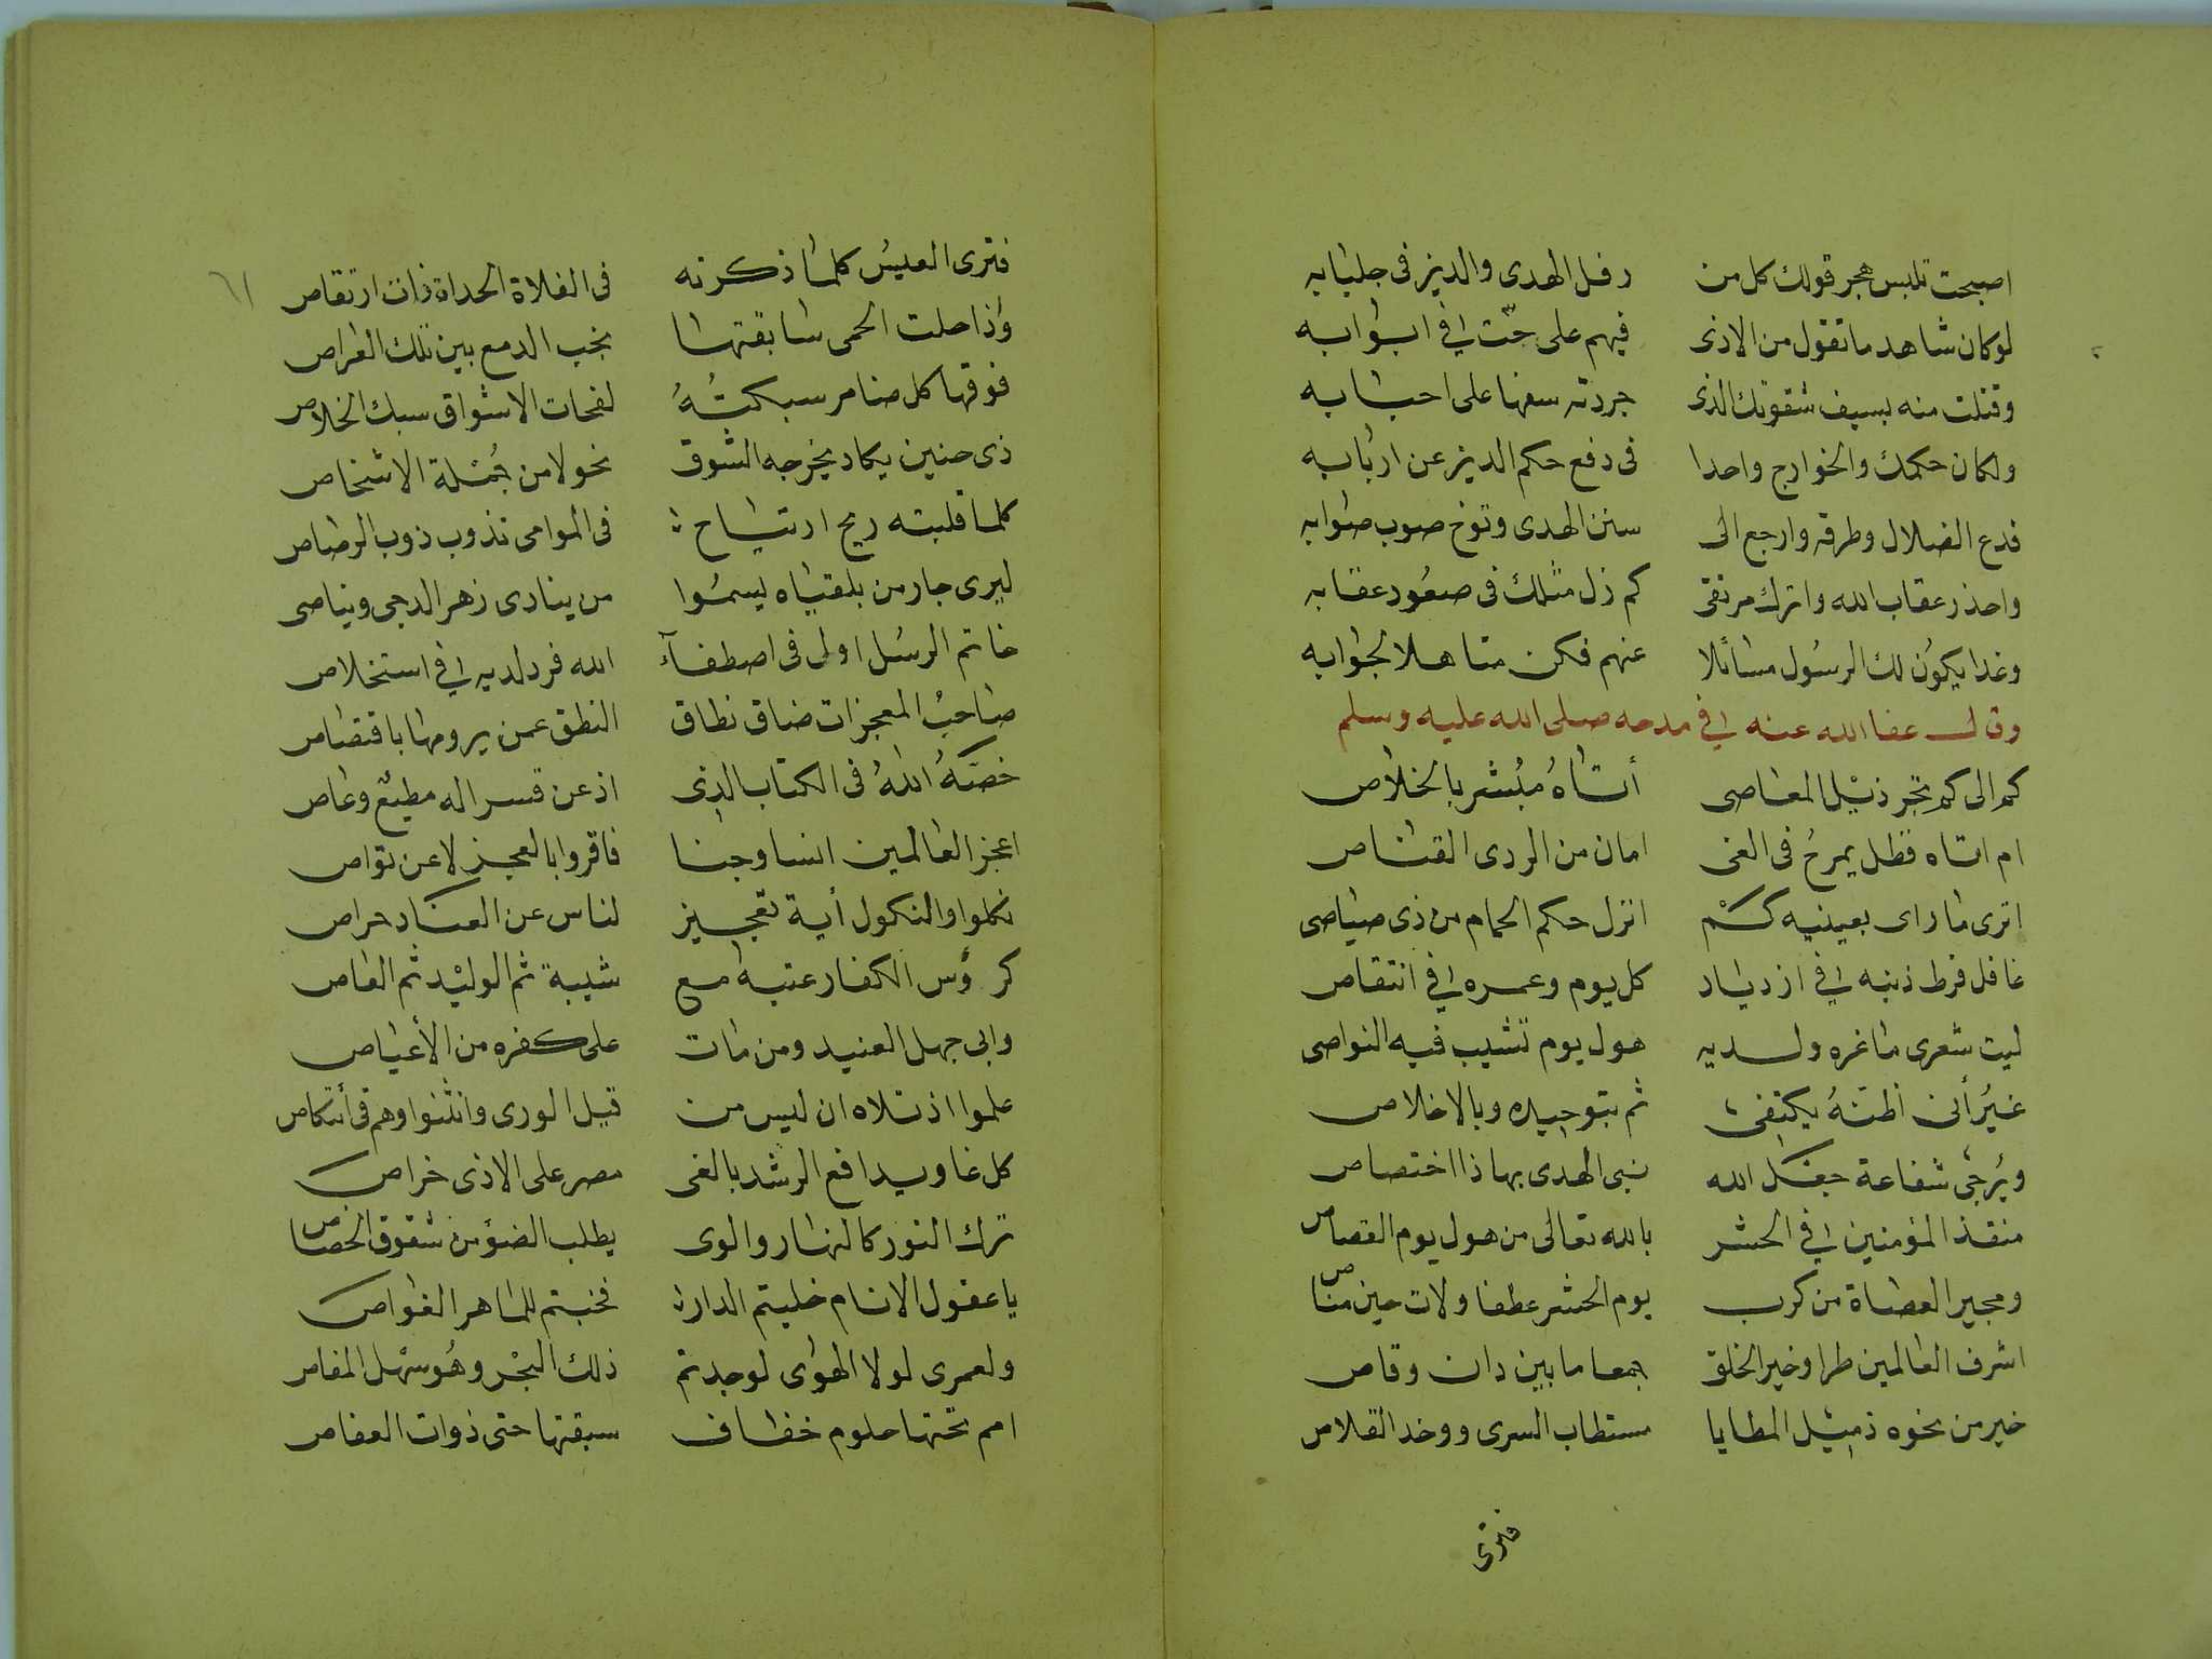 اصبحت تلبس هجر قولك كل من رفل الهدى والدين فى جلبابه
لو كان شاهد ما تقول من الاذى فيهم على حث فى ابوابه
وقتلت منه بسيف شقوتك الذى جردته سفها على احبابه
ولكان حكمك والخوارج واحدا فى دفع حكم الدين عن اربابه
فدع الضلال وطرقه وارجع الى سنن الهدى وتوخ صوب صوابه
واحذر عقاب الله واترك مرتقى كم زل مثلك فى صعود عقابه
وغدا يكون لك الرسول مسائلا عنهم فكن متاهلا لجوابه
وقال عفا الله عنه فى مدحه صلى الله عليه وسلم
كم الى كم تجر ذيل المعاصى أتاه مبشر بالخلاص
ام اتاه فظل يمرح فى الغى امان من الردى القناص
اترى ما راى بعينيه كم انزل حكم الحمام من ذى صياصى
غافل فرط ذنبه فى ازدياد كل يوم وعمره فى انتقاص
ليت شعرى ما غره ولديه هول يوم تشيب فيه النواصى
غير أنى اظنه يكتفى ثم بتوحيده وبالاخلاص
ويرجى شفاعة جعل الله نبى الهدى بها ذا اختصاص
منقذ المؤمنين فى الحشر بالله تعالى من هول يوم القصاص
ومجير العصاة من كرب يوم الحشر عطفا ولات حين مناص
اشرف العالمين طرا وخير الخلق جمعا ما بين دان وقاص
خير من نحوه ذميل المطايا مستطاب السرى ووخد القلاص
فترى
٦١
فترى العيس كلما ذكرته فى الفلاة الحداة ذات ارتقاص
واذا حلت الحمى سابقتها نجب الدمع بين تلك العراص
فوقها كل ضامر سبكته لفحات الاشواق سبك الخلاص
ذى حنين يكاد يخرجه الشوق نحولا من جملة الاشخاص
كلما قلبته ريح ارتياح فى الموامى تذوب ذوب الرصاص
ليرى جار من بلقياه يسموا من ينادى زهر الدجى ويناصى
خاتم الرسل اولى فى اصطفآء الله فرد لديه فى استخلاص
صاحب المعجزات ضاق نطاق النطق عمن يرومها باقتصاص
خصه الله فى الكتاب الذى اذعن قسرا له مطيع وعاص
اعجز العالمين انسا وجنا فاقروا بالعجز لا عن تواص
نكلوا والنكول أية تعجيز لناس عن العناد حراص
كرؤس الكفار عتبة مع شيبة ثم الوليد ثم العاص
وابى جهل العنيد ومن مات على كفره من الأعياص
علموا اذ تلاه ان ليس من قيل الورى وانثنوا وهم فى أنتكاص
كل غاو يدافع الرشد بالغى مصر على الاذى خراص
ترك النور كالنهار والوى يطلب الضوء من شقوق الخصاص
يا عقول الانام خليتم الدار فخبتم للماهر الغواص
ولعمرى لولا الهوى لوجدتم ذلك البحر وهو سهل المغاص
امم تحتها حلوم خفاف سبقتها حتى ذوات العفاص